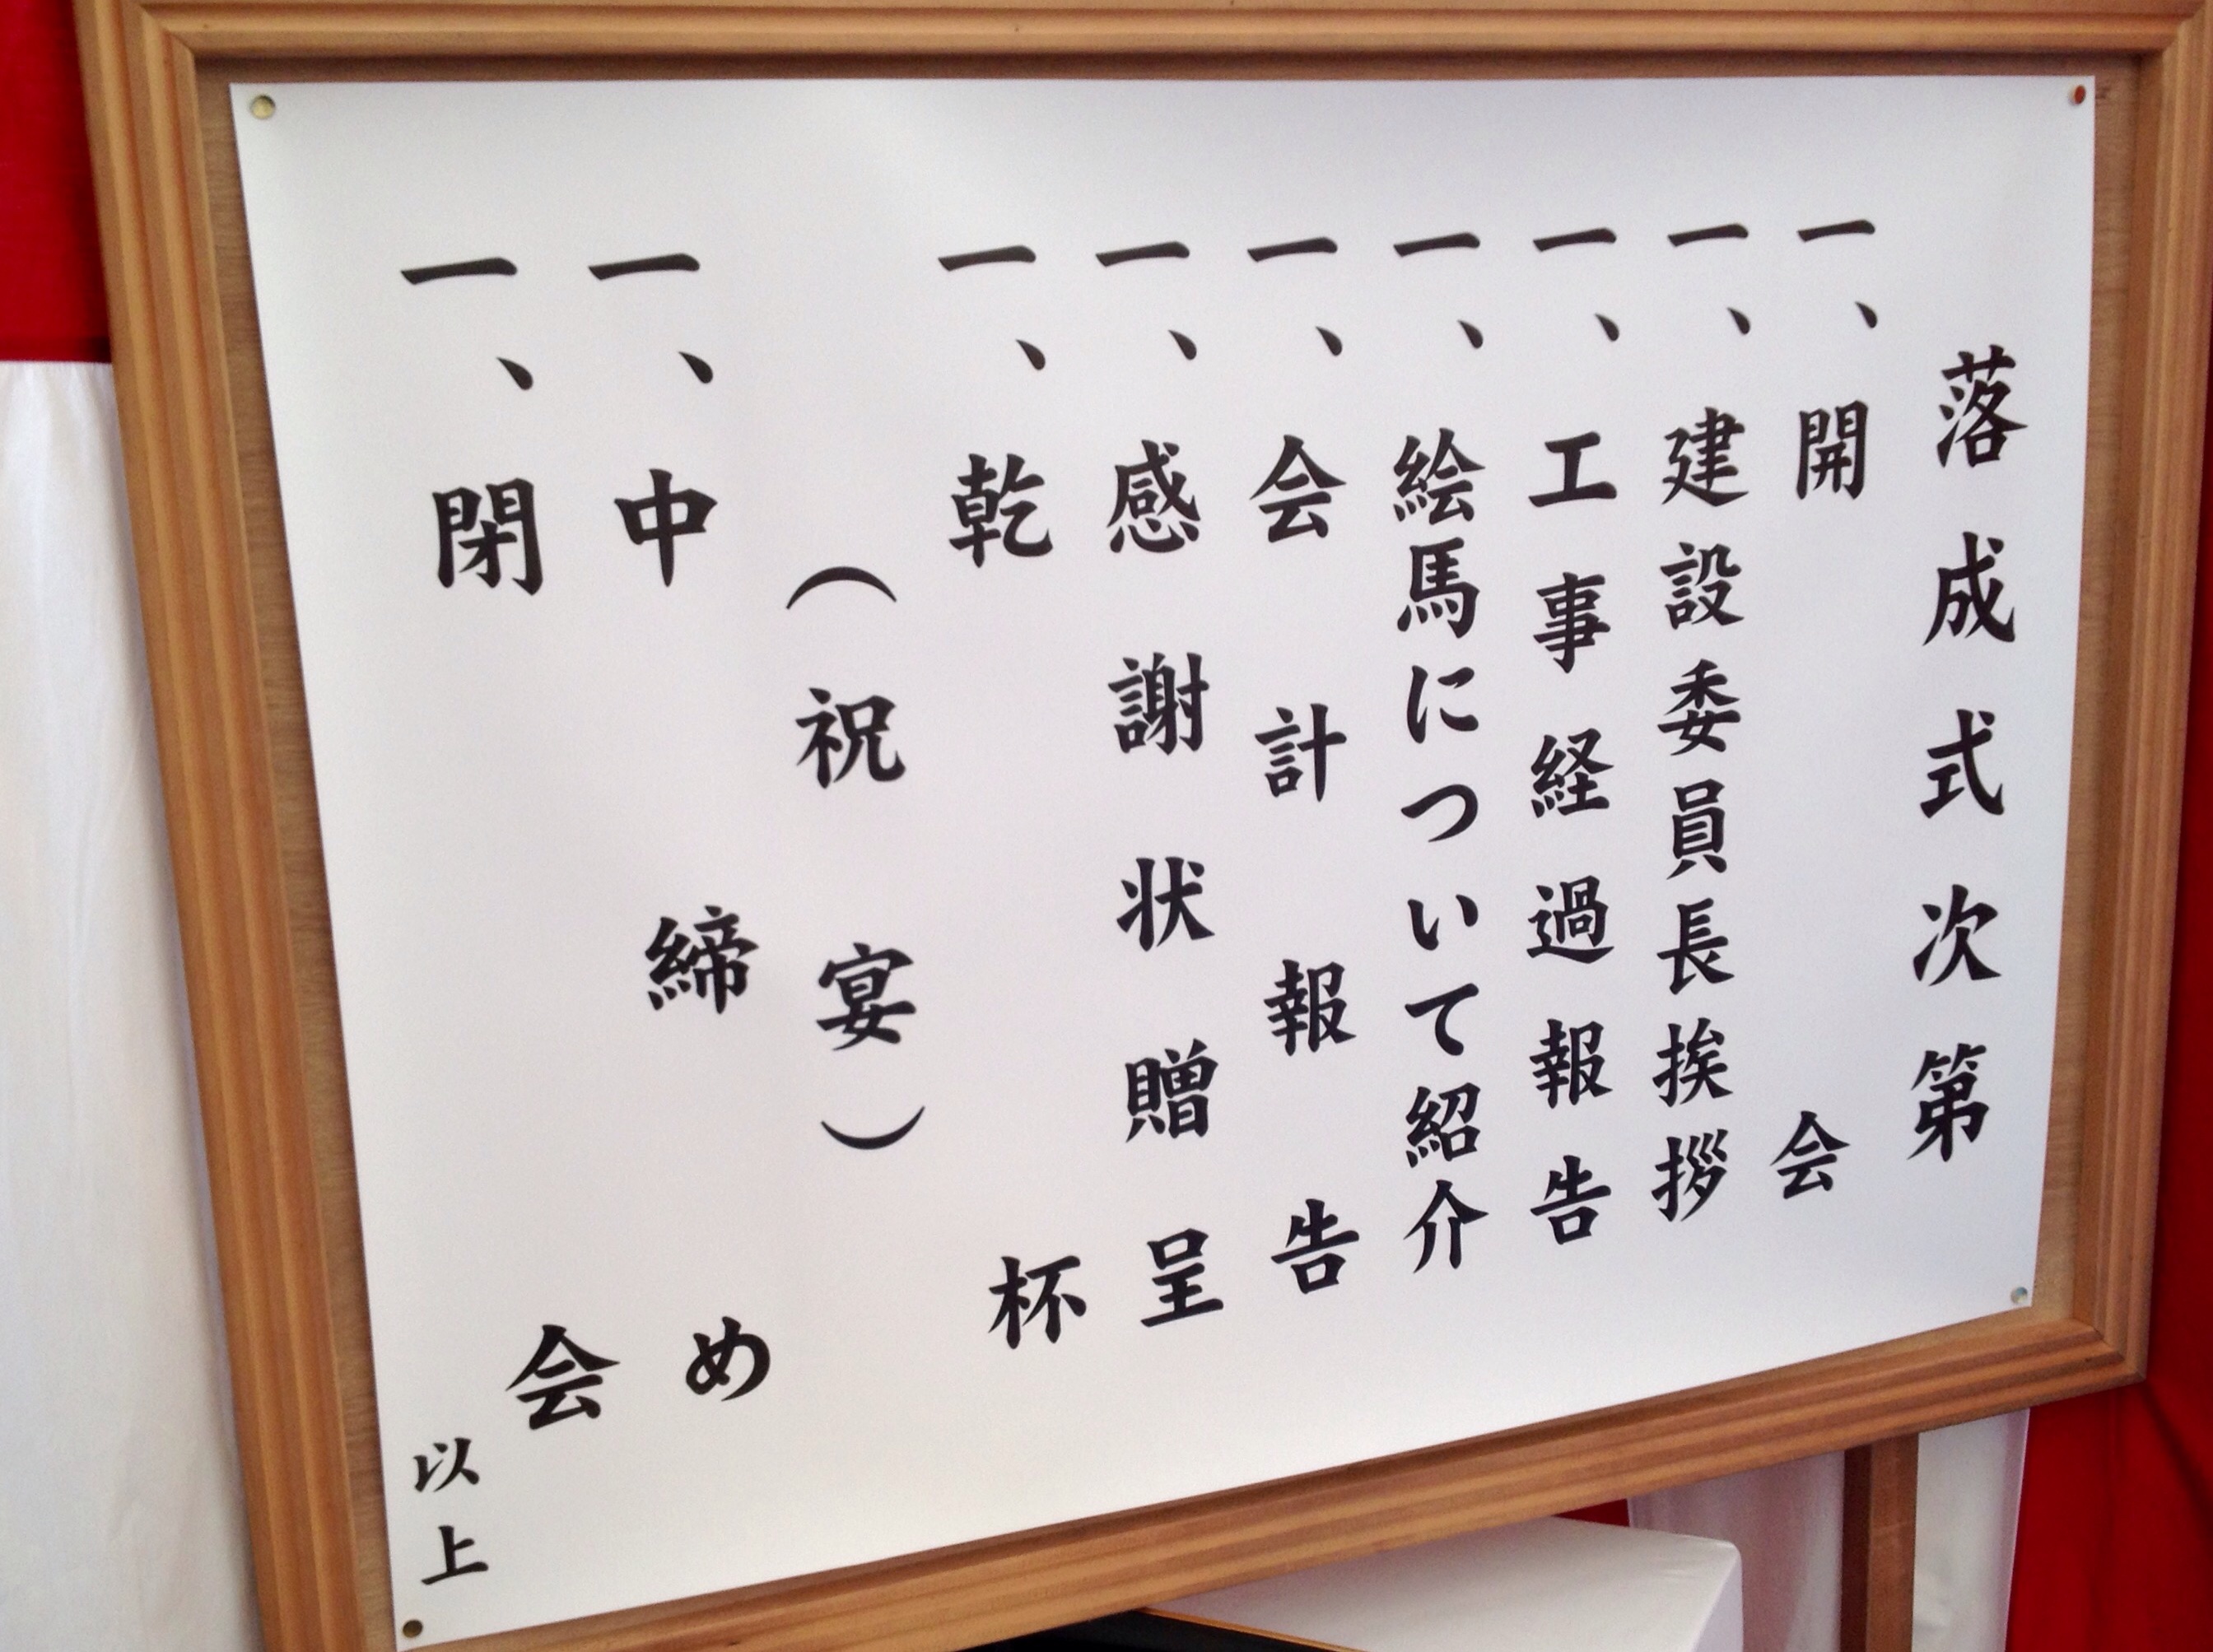 落成式次第
一、開会
一、建設委員長挨拶
一、工事経過報告
一、絵馬について紹介
一、会計報告
一、感謝状贈呈
一、乾杯
（祝宴）
一、中締め
一、閉会
以上